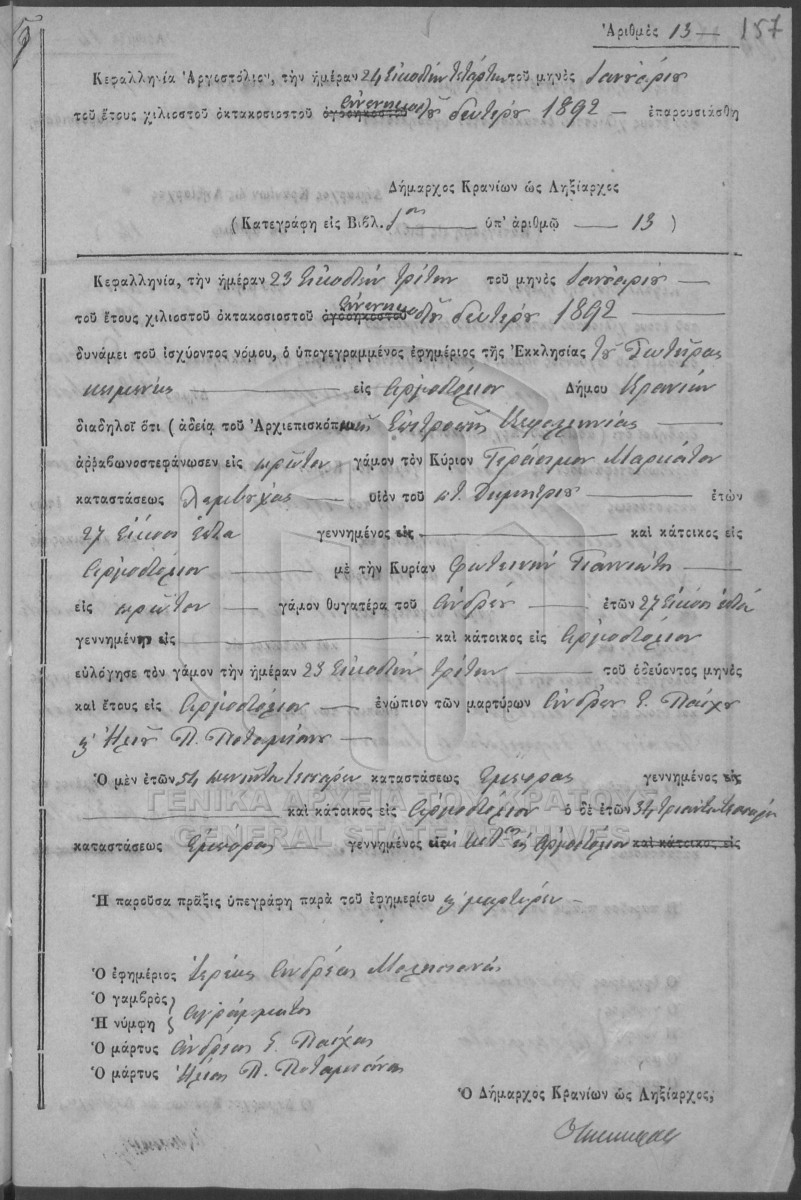 Ἀριθμὸς 13 — 157
Κεφαλληνία Ἀργοστόλιον, τὴν ἡμέραν 24 Εἰκοστὴν τετάρτην τοῦ μηνὸς Ἰανουαρίου
τοῦ ἔτους χιλιοστοῦ ὀκτακοσιοστοῦ ὀγδοηκοστοῦ ἐννενηκοστοῦ δευτέρου 1892 — ἐπαρουσιάσθη
Δήμαρχος Κρανίων ὡς Ληξίαρχος
(Κατεγράφη εἰς Βιβλ. 1ον — ὑπ' ἀριθμῷ — 13)
Κεφαλληνία, τὴν ἡμέραν 23 Εἰκοστὴν τρίτην τοῦ μηνὸς Ἰανουαρίου —
τοῦ ἔτους χιλιοστοῦ ὀκτακοσιοστοῦ ὀγδοηκοστοῦ ἐννενηκοστοῦ δευτέρου 1892 —
δυνάμει τοῦ ἰσχύοντος νόμου, ὁ ὑπογεγραμμένος ἐφημέριος τῆς Ἐκκλησίας τοῦ Σωτῆρος
κειμένης — εἰς Ἀργοστόλιον Δήμου Κρανίων
διαδηλοῖ ὅτι (ἀδείᾳ τοῦ Ἀρχιεπισκόπ Ἐπιτροπῆς Κεφαλληνίας —
ἀῤῥαβωνοστεφάνωσεν εἰς πρῶτον γάμον τὸν Κύριον Γεράσιμον Μαρκάτον
καταστάσεως — υἱὸν τοῦ ποτ. Δημητρίου — ἐτῶν
27 Εἴκοσι ἑπτὰ γεννημένος εἰς — καὶ κάτοικος εἰς
Ἀργοστόλιον — μὲ τὴν Κυρίαν Φωτεινὴν Γιαννιώτη —
εἰς πρῶτον — γάμον θυγατέρα τοῦ Ἀνδρέου — ἐτῶν 27 Εἴκοσι ἑπτὰ
γεννημένην εἰς — καὶ κάτοικος εἰς Ἀργοστόλιον
εὐλόγησε τὸν γάμον τὴν ἡμέραν 23 Εἰκοστὴν τρίτην — τοῦ ὁδεύοντος μηνὸς
καὶ ἔτους εἰς Ἀργοστόλιον — ἐνώπιον τῶν μαρτύρων Ἀνδρέου Σ. Πάσχου
κ' Ἠλία Π. Ποταμιάνου —
Ὁ μὲν ἐτῶν 54 πενήντα τεσσάρων καταστάσεως Ἔμπορος γεννημένος εἰς
— καὶ κάτοικος εἰς Ἀργοστόλιον ὁ δὲ ἐτῶν 34 τριάντα τεσσάρων
καταστάσεως Ἔμπορος — γεννημένος εἰς κ' κάτοικος εἰς Ἀργοστόλιον καὶ κάτοικος εἰς
Ἡ παροῦσα πρᾶξις ὑπεγράφη παρὰ τοῦ ἐφημερίου κ' μαρτύρων —
Ὁ ἐφημέριος Ἱερεὺς Ἀνδρέας
Ὁ γαμβρὸς
Ἡ νύμφη } Ἀγράμματοι
Ὁ μάρτυς Ἀνδρέας Σ. Πάσχος
Ὁ μάρτυς Ἠλίας Π. Ποταμιάνος
Ὁ Δήμαρχος Κρανίων ὡς Ληξίαρχος,
ΓΕΝΙΚΑ ΑΡΧΕΙΑ ΤΟΥ ΚΡΑΤΟΥΣ
GENERAL STATE ARCHIVES